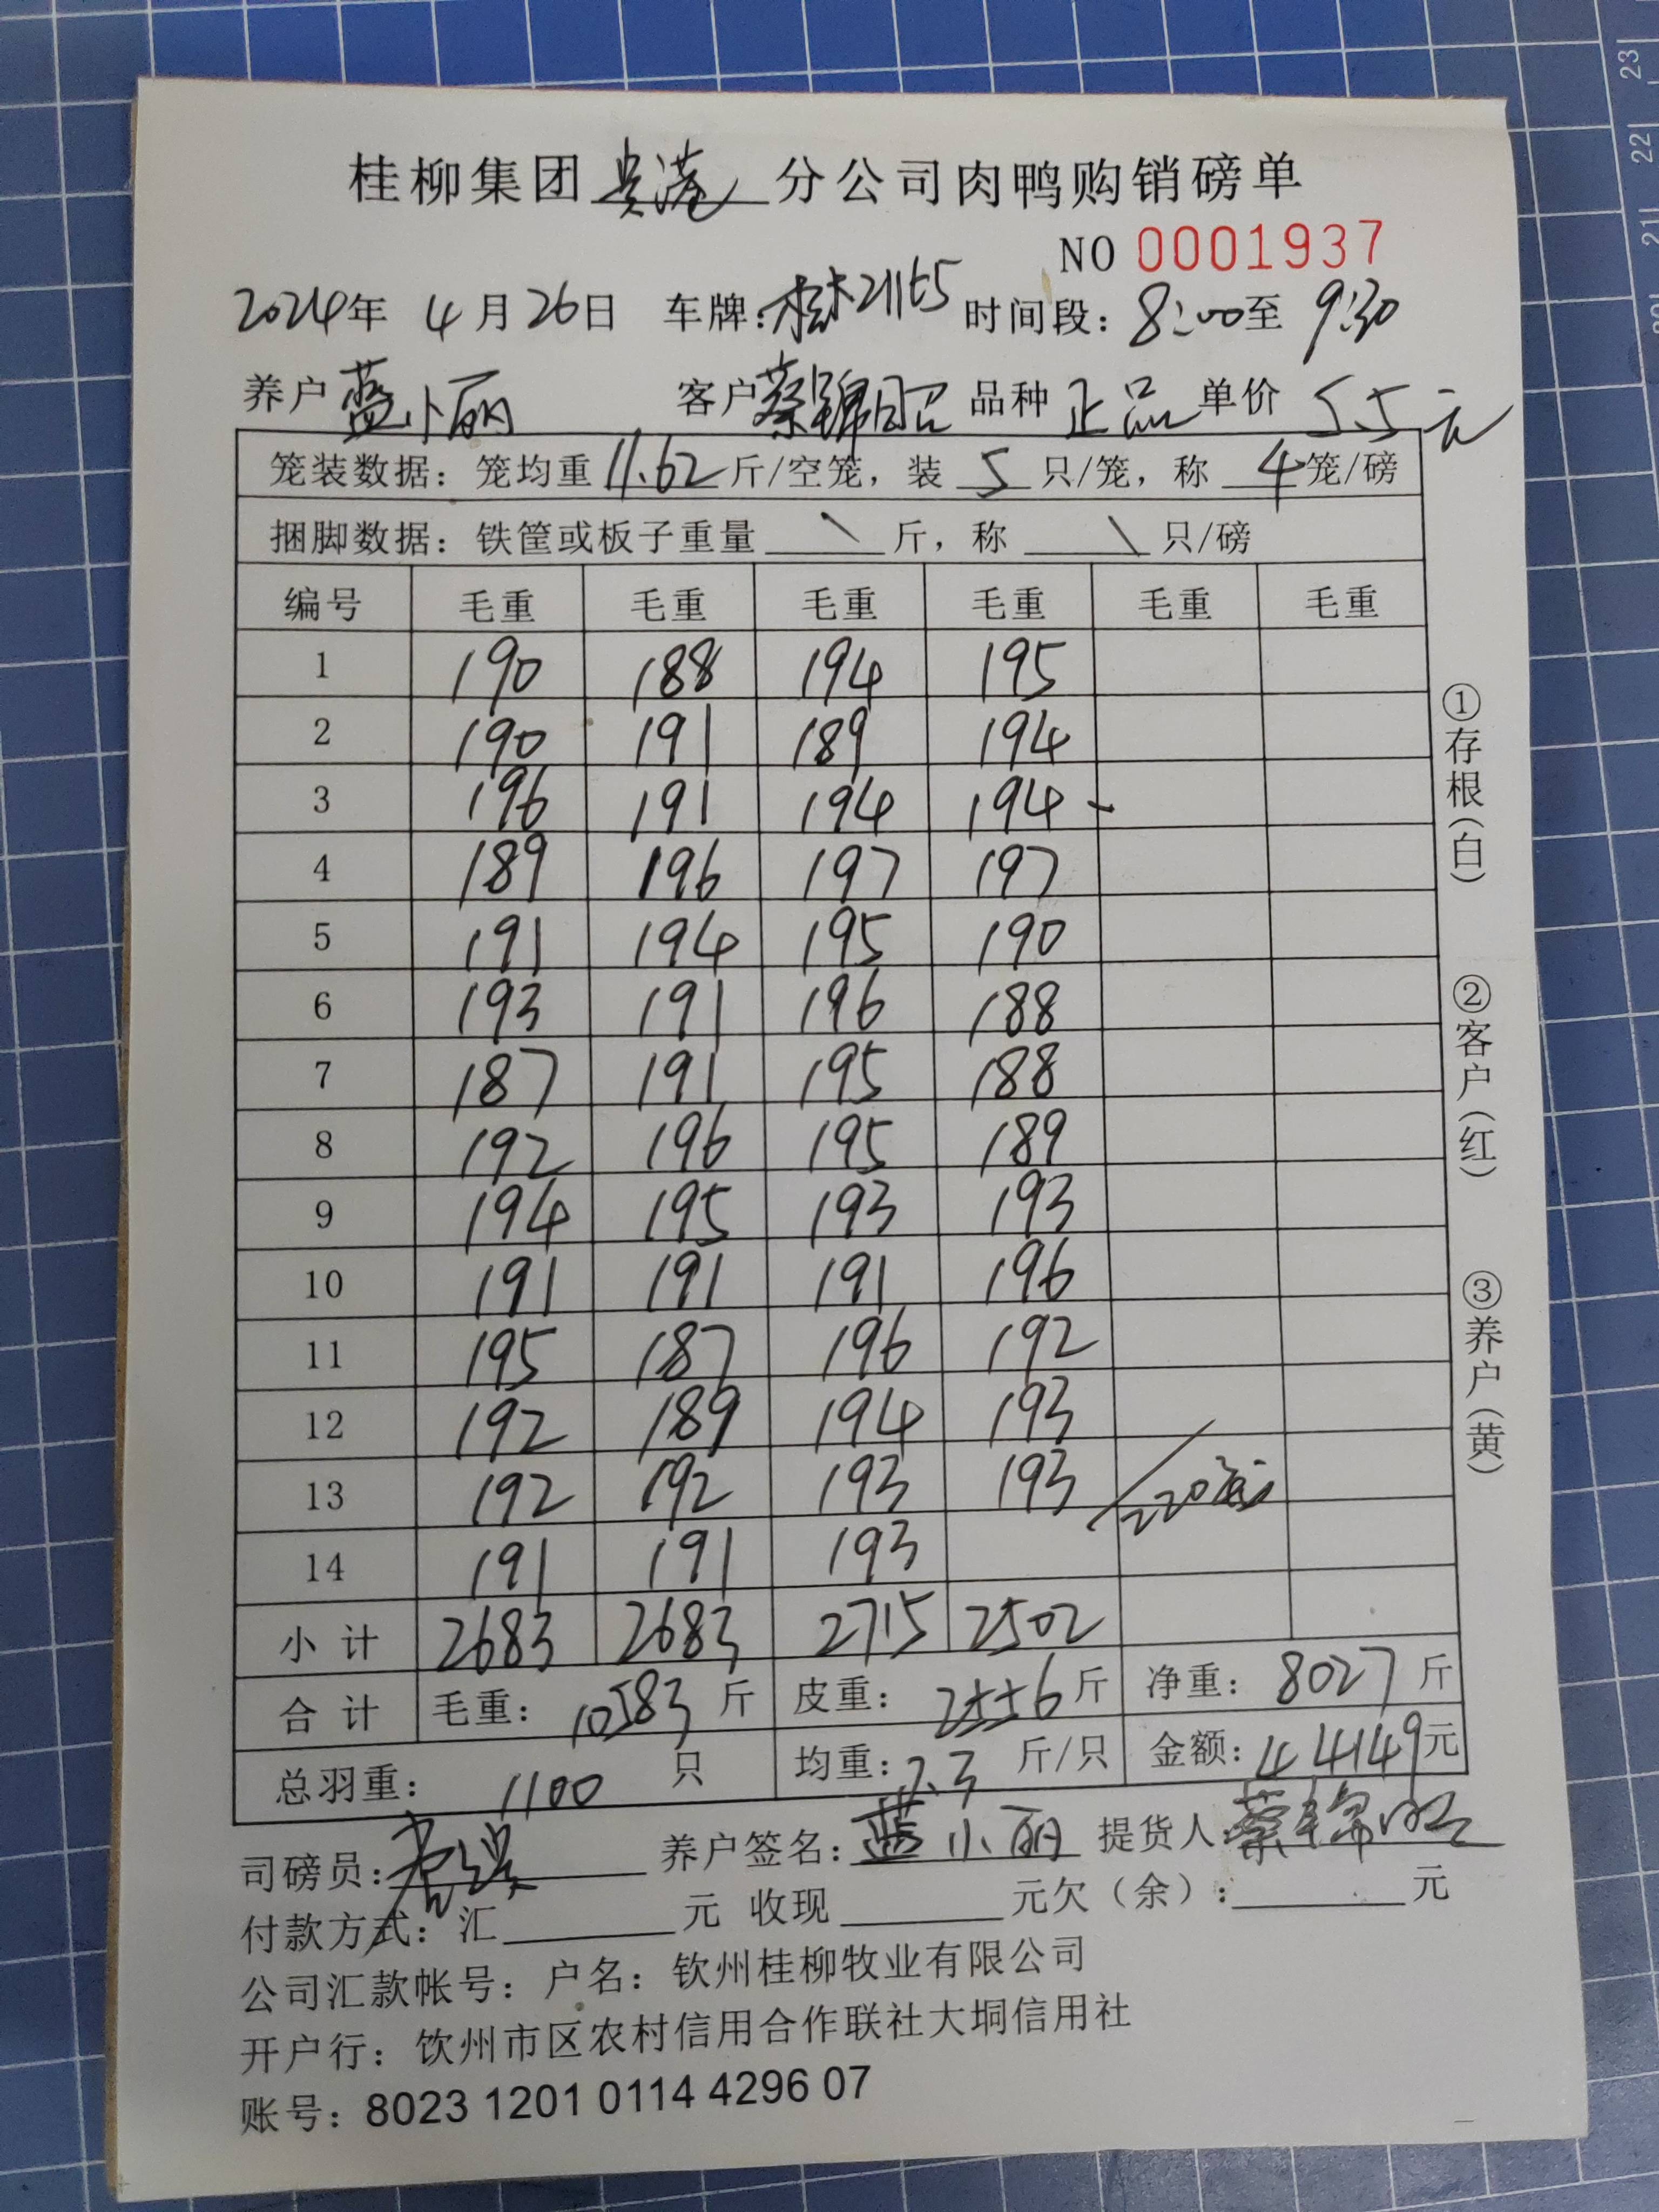 桂柳集团贵港分公司肉鸭购销磅单
NO 0001937
2024年 4月26日 车牌:桂 21165 时间段:8:00至 9:30
养户 蓝小丽 客户 蔡锦昭 品种 正品 单价 5.5元
笼装数据:笼均重 11.62 斤/空笼,装 5 只/笼,称 4 笼/磅
捆脚数据:铁筐或板子重量 \ 斤,称 \ 只/磅
编号 毛重 毛重 毛重 毛重 毛重 毛重
1 190 188 194 195
2 190 191 189 194
3 196 191 194 194
4 189 196 197 197
5 191 194 195 190
6 193 191 196 188
7 187 191 195 188
8 192 196 195 189
9 194 195 193 193
10 191 191 191 196
11 195 187 196 192
12 192 189 194 193
13 192 192 193 193 220笼
14 191 191 193
小计 2683 2683 2715 2502
合计 毛重:10583斤 皮重:2556斤 净重:8027斤
总羽重:1100 只 均重:7.3 斤/只 金额:44149元
司磅员: 养户签名:蓝小丽 提货人:蔡锦昭
付款方式:汇 元 收现 元欠(余): 元
公司汇款帐号:户名:钦州桂柳牧业有限公司
开户行:饮州市区农村信用合作联社大垌信用社
账号:8023 1201 0114 4296 07
①存根(白) ②客户(红) ③养户(黄)